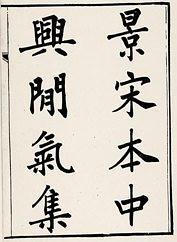 景宋本中
興閒氣集